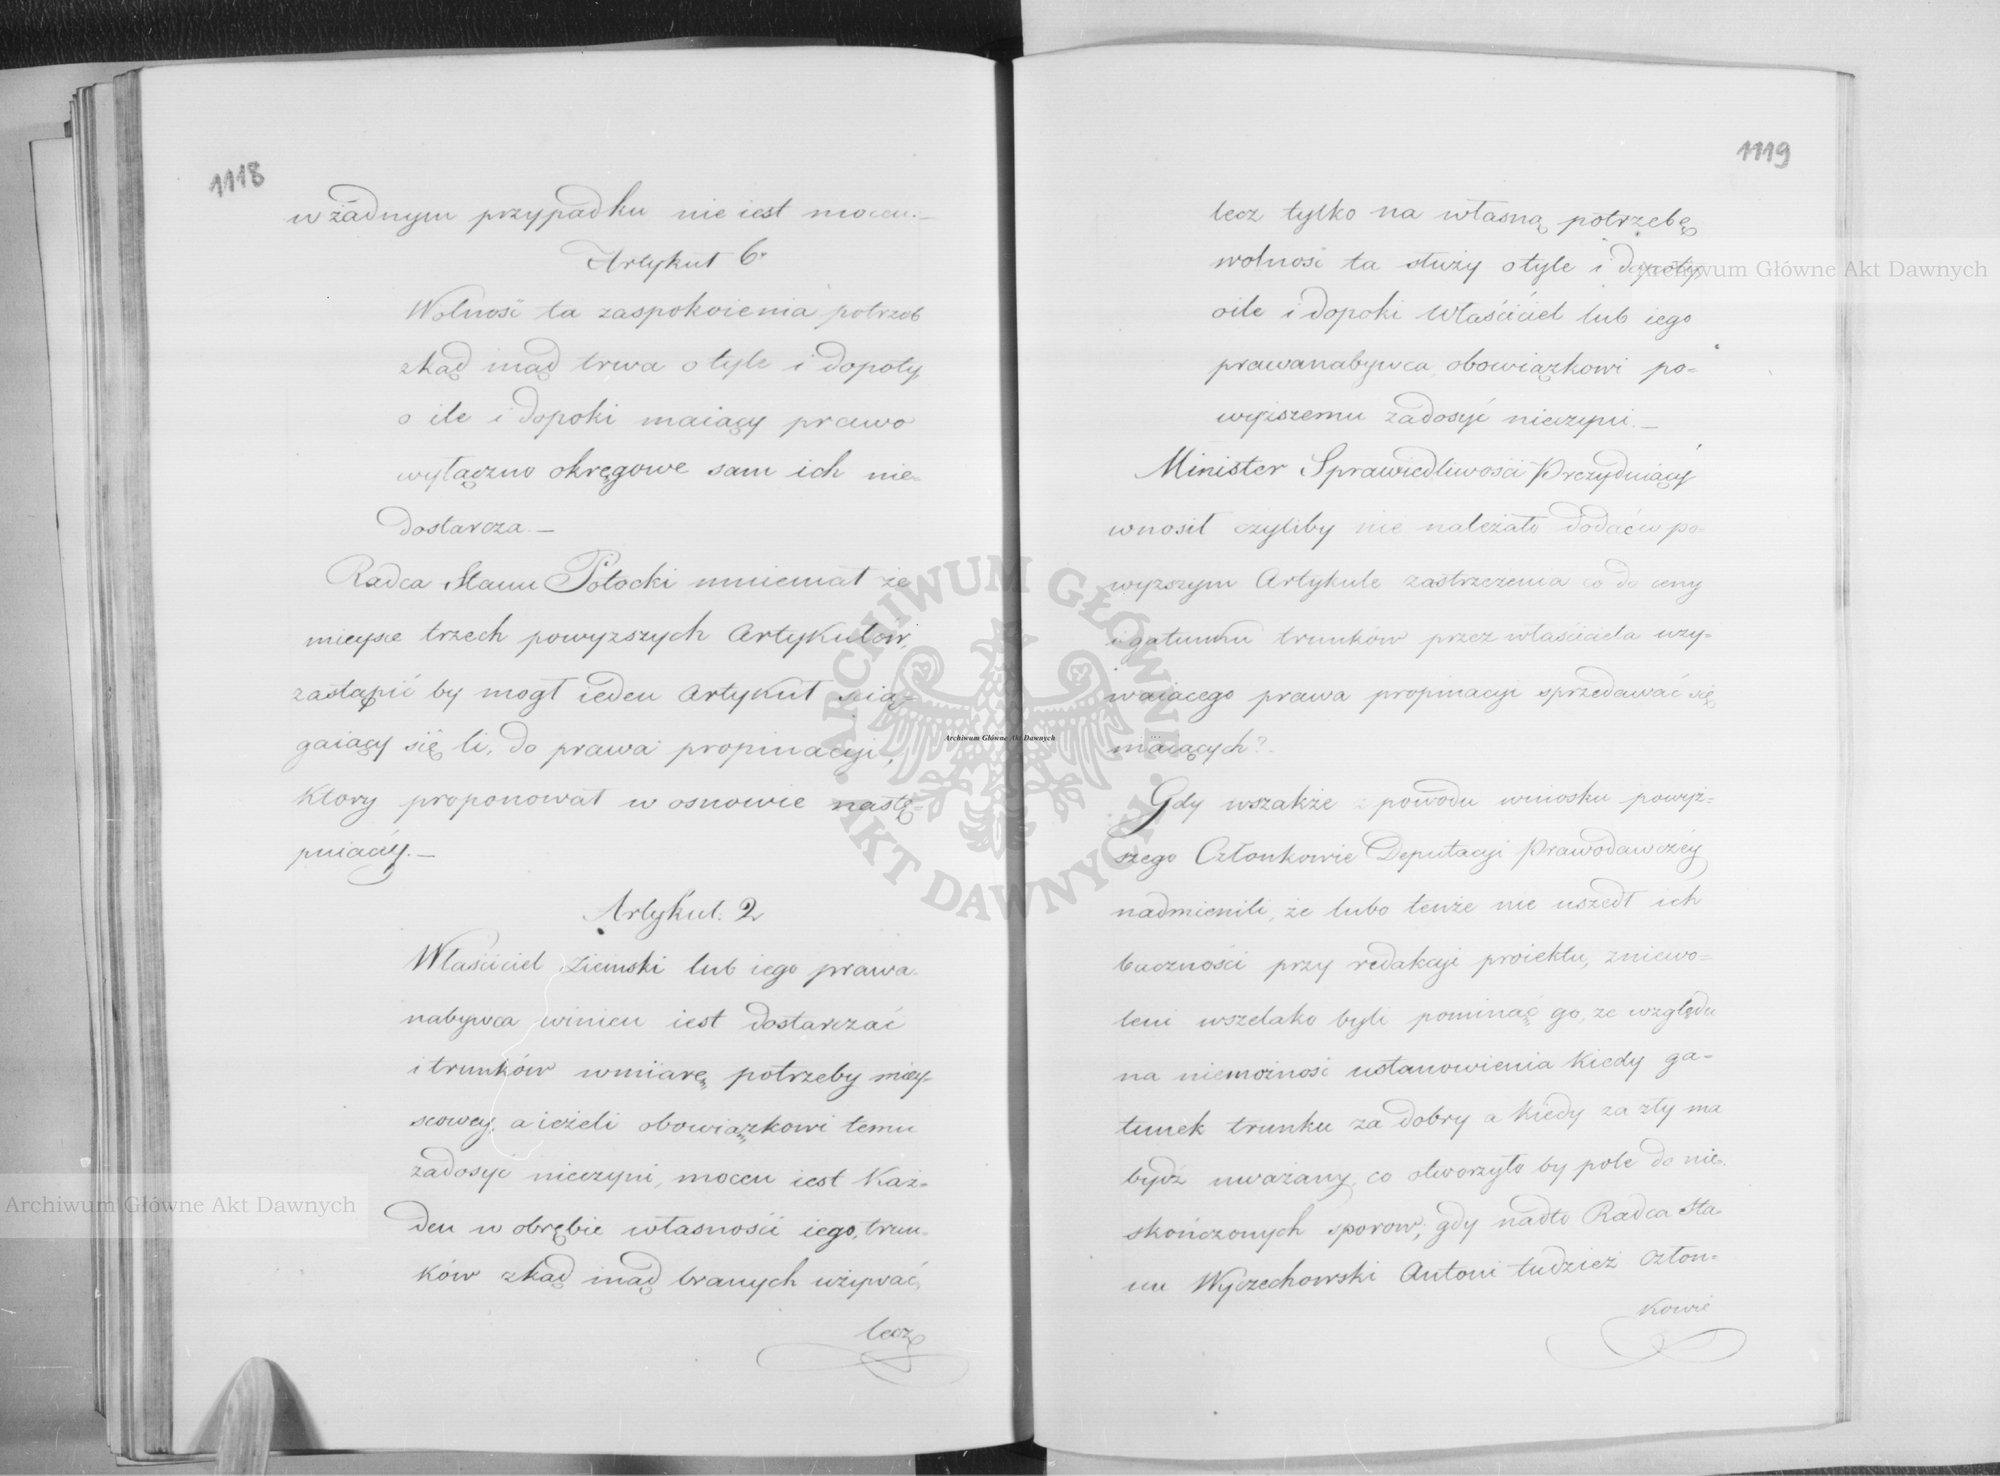 1118
w żadnym przypadku nie iest mocen.—
Artykuł 6.
Wolność ta zaspokoienia potrzeb
zkąd inąd trwa o tyle i dopoty
o ile i dopoki maiący prawo
wyłączno okręgowe sam ich nie-
dostarcza.—
Radca Stanu Potocki mniemał że
mieysce trzech powyzszych Artykułow,
zastąpić by mogł ieden Artykuł ścią-
gaiący się li, do prawa propinacyi,
ktory proponował w osnowie nastę-
puiącéy.—
Artykuł. 2
Właściciel Ziemski lub iego prawa-
nabywca winien iest dostarczać
i trunków w miarę potrzeby miey-
scowey, a ieżeli obowiązkowi temu
zadosyć nieczyni, mocen iest Każ-
den w obrębie własności iego, trun-
ków zkąd inąd branych używać,
lecz
1119
lecz tylko na własną potrzebę
wolność ta służy o tyle i dopoty
oile i dopoki Właściciel lub iego
prawanabywca obowiązkowi po-
wyższemu zadosyć nieczyni.—
Minister Sprawiedliwości Prezyduiący
wnosił czyliby nie należało dodać w po-
wyzszym Artykule zastrzeżenia co do ceny
i gatunku trunków przez właściciela uzy-
waiącego prawa propinacyi sprzedawać się
maiących?—
Gdy wszakże z powodu wniosku powyż-
szego Członkowie Deputacyi Prawodawczéy
nadmienili, że lubo tenże nie uszedł ich
baczności przy redakcyi proiektu, zniewo-
leni wszelako byli pominąć go, ze względu
na niemożność ustanowienia kiedy ga-
tunek trunku za dobry a kiedy za zły ma
bydź uważany, co stworzyło by pole do nie-
skończonych sporow; gdy nadto Radca Sta-
nu Wyczechowski Antoni tudzież Człon-
kowie
ARCHIWUM GŁÓWNE
AKT DAWNYCH
Archiwum Główne Akt Dawnych
Archiwum Główne Akt Dawnych
Archiwum Główne Akt Dawnych